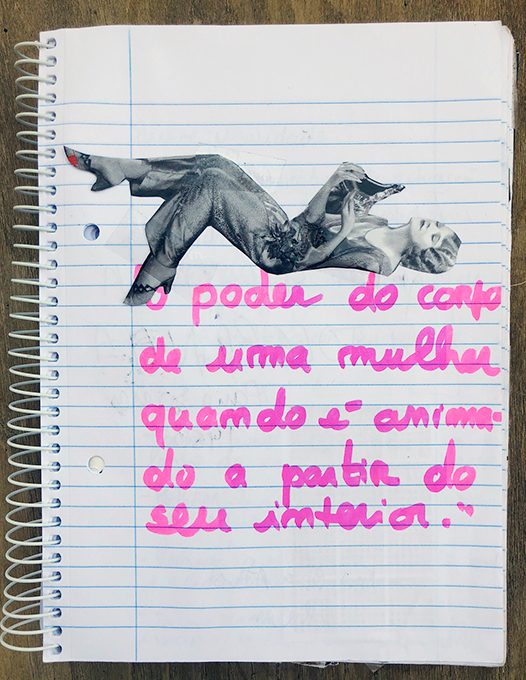 "O poder do corpo
de uma mulher
quando é anima-
do a partir do
seu interior."